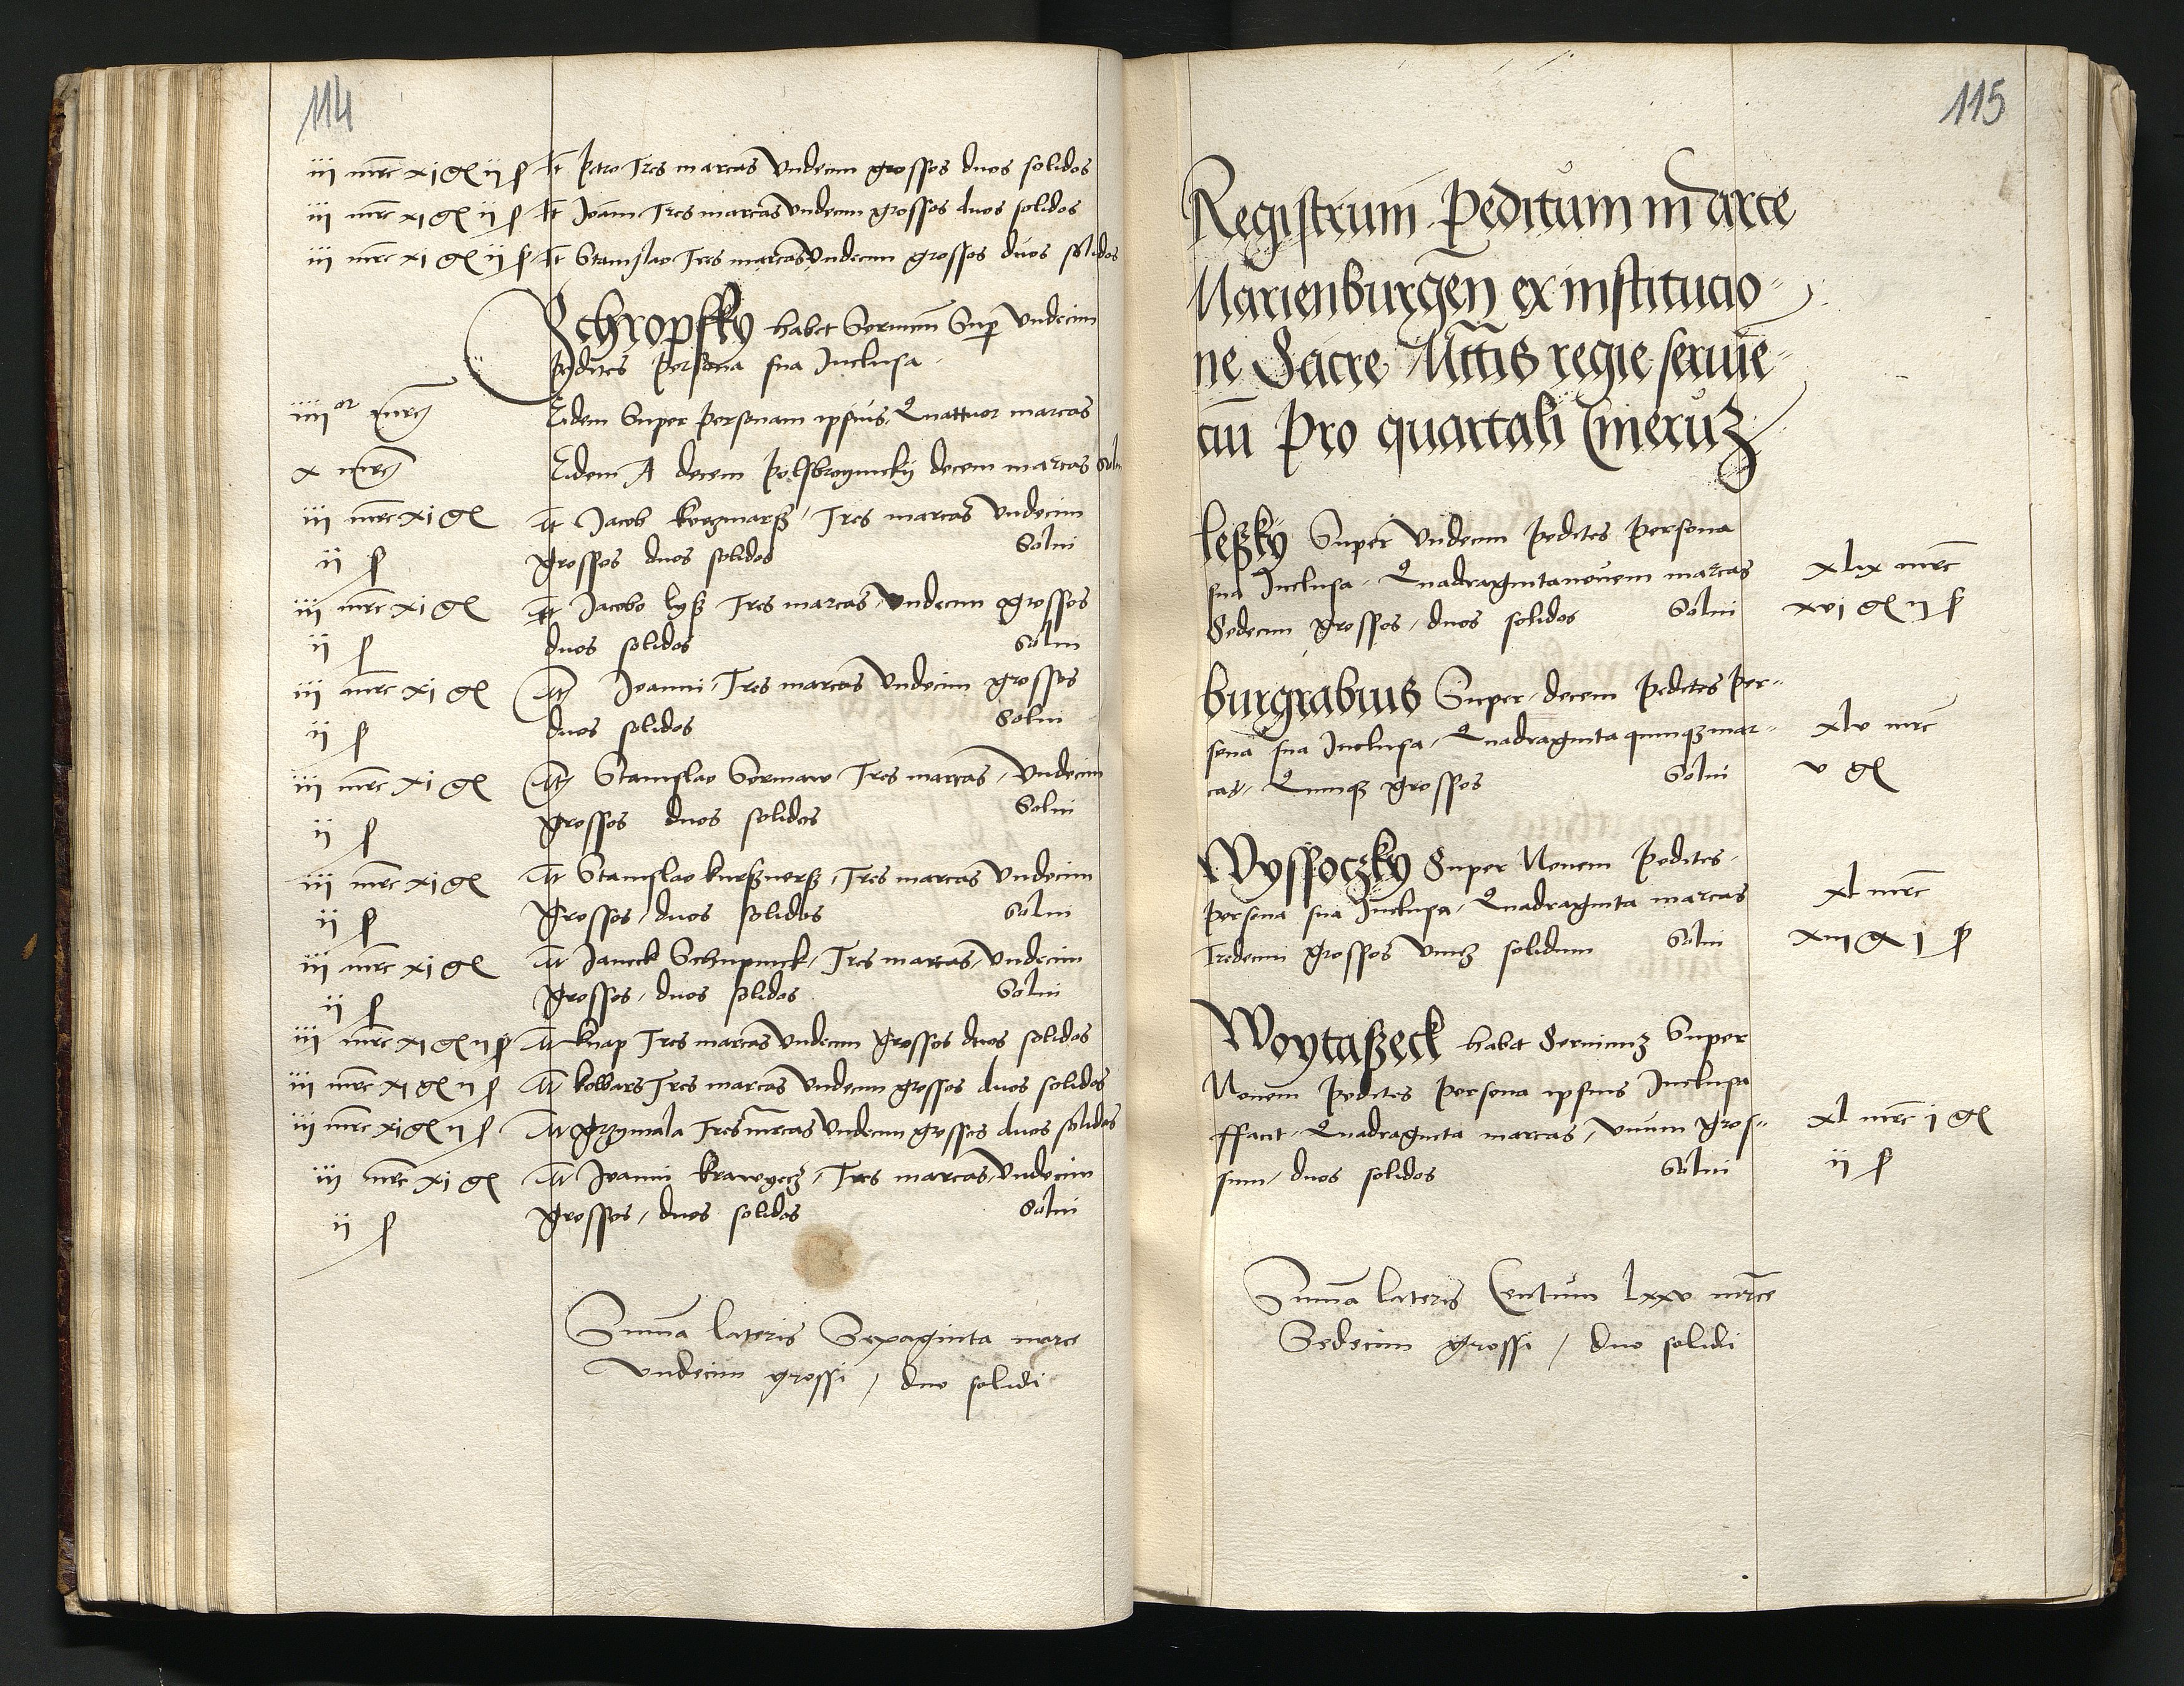 114
iii mrc xi gr ii s It Petro Tres marcas Undecim grossos duos solidos
iii mrc xi gr ii s It Joanni Tres marcas Undecim grossos duos solidos
iii mrc xi gr ii s It Stanislao Tres marcas Undecim grossos duos solidos
Schropssky habet Seruicium Sup Undecim
pedites persona sua Inclusa
iiii or mrc Eidem Super personam ipsius Quattuor marcas
x mrc Eidem A decem decem marcas Solui
iii mrc xi gr It Jacob Tres marcas Undecim
ii s grossos duos solidos Solui
iii mrc xi gr It Jacobo lyß Tres marcas Undecim grossos
ii s duos solidos Solui
iii mrc xi gr It Joanni Tres marcas Undecim grossos
ii s duos solidos Solui
iii mrc xi gr It Stanislao Sormaw Tres marcas Undecim
ii s grossos duos solidos Solui
iii mrc xi gr It Stanislao kurßnerß Tres marcas Undecim
ii s grossos duos solidos Solui
iii mrc xi gr It Janeck Tres marcas Undecim
ii s grossos duos solidos Solui
iii mrc xi gr ii s It knap Tres marcas Undecim grossos duos solidos
iii mrc xi gr ii s It Tres marcas Undecim grossos duos solidos
iii mrc xi gr ii s It grzymala Tres mrcas Undecim grossos duos solidos
iii mrc xi gr It Joanni krawyecz Tres marcas Undecim
ii s grossos duos solidos Solui
Suma lateris Sexaginta marce
Undecim grossi / duo solidi
115
Registrum Peditum in Arce
Marienburgen ex institucio
ne Sacre Mttis regie seruie
ciu Pro quartali Cineruz
leßky Super Undecim pedites persona
sua Inclusa Quadragintanouem marcas xlix mrc
Sedecim grossos duos solidos Solui xvi gr ii s
burgrabius Super decem pedites per
sona sua Inclusa Quadraginta quinqz mar xlv mrc
cas Quinqz grossos Solui v gr
Wyssoczky Super Nouem pedites
persona sua Inclusa Quadraginta marcas xl mrc
Tredecim grossos Unuz solidum Solui xiii gr i s
Woytaßeck habet Seruiciuz Super
Nouem pedites persona ipsius Inclusa
ffacit Quadraginta marcas Unum gros xl mrc i gr
sum duos solidos Solui ii s
Suma lateris Centum lxxv mrce
Sedecim grossi / duo solidi